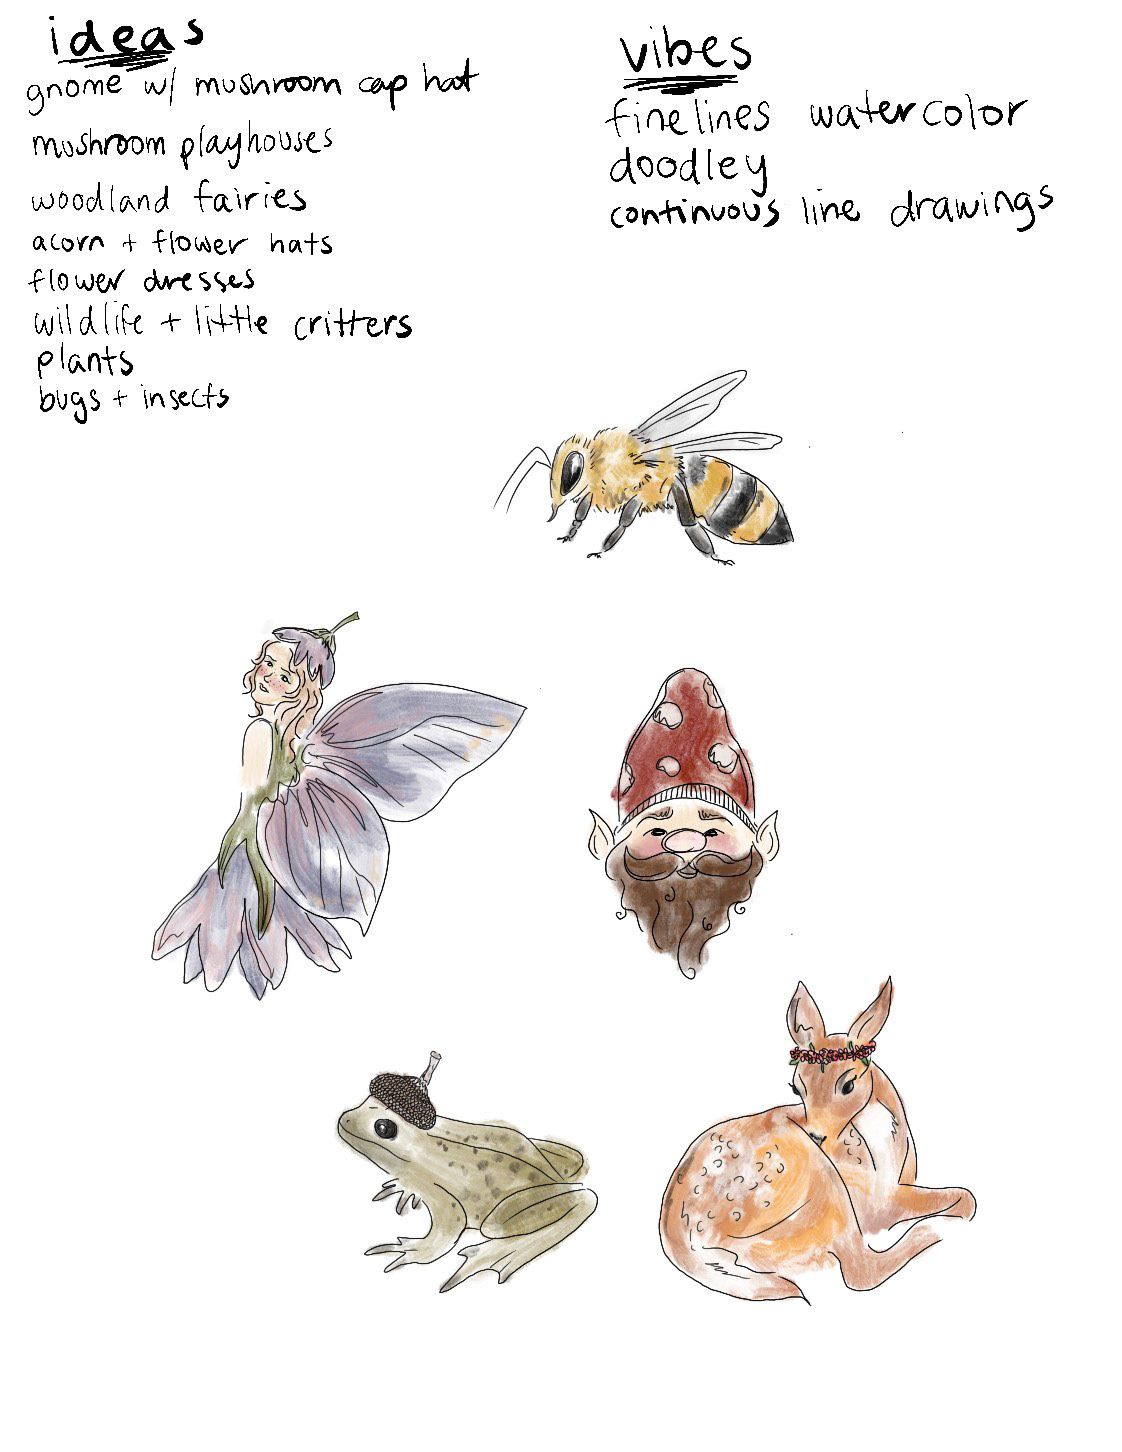 ideas
gnome w/ mushroom cap hat
mushroom playhouses
woodland fairies
acorn + flower hats
flower dresses
wildlife + little critters
plants
bugs + insects
vibes
fine lines watercolor
doodley
continuous line drawings